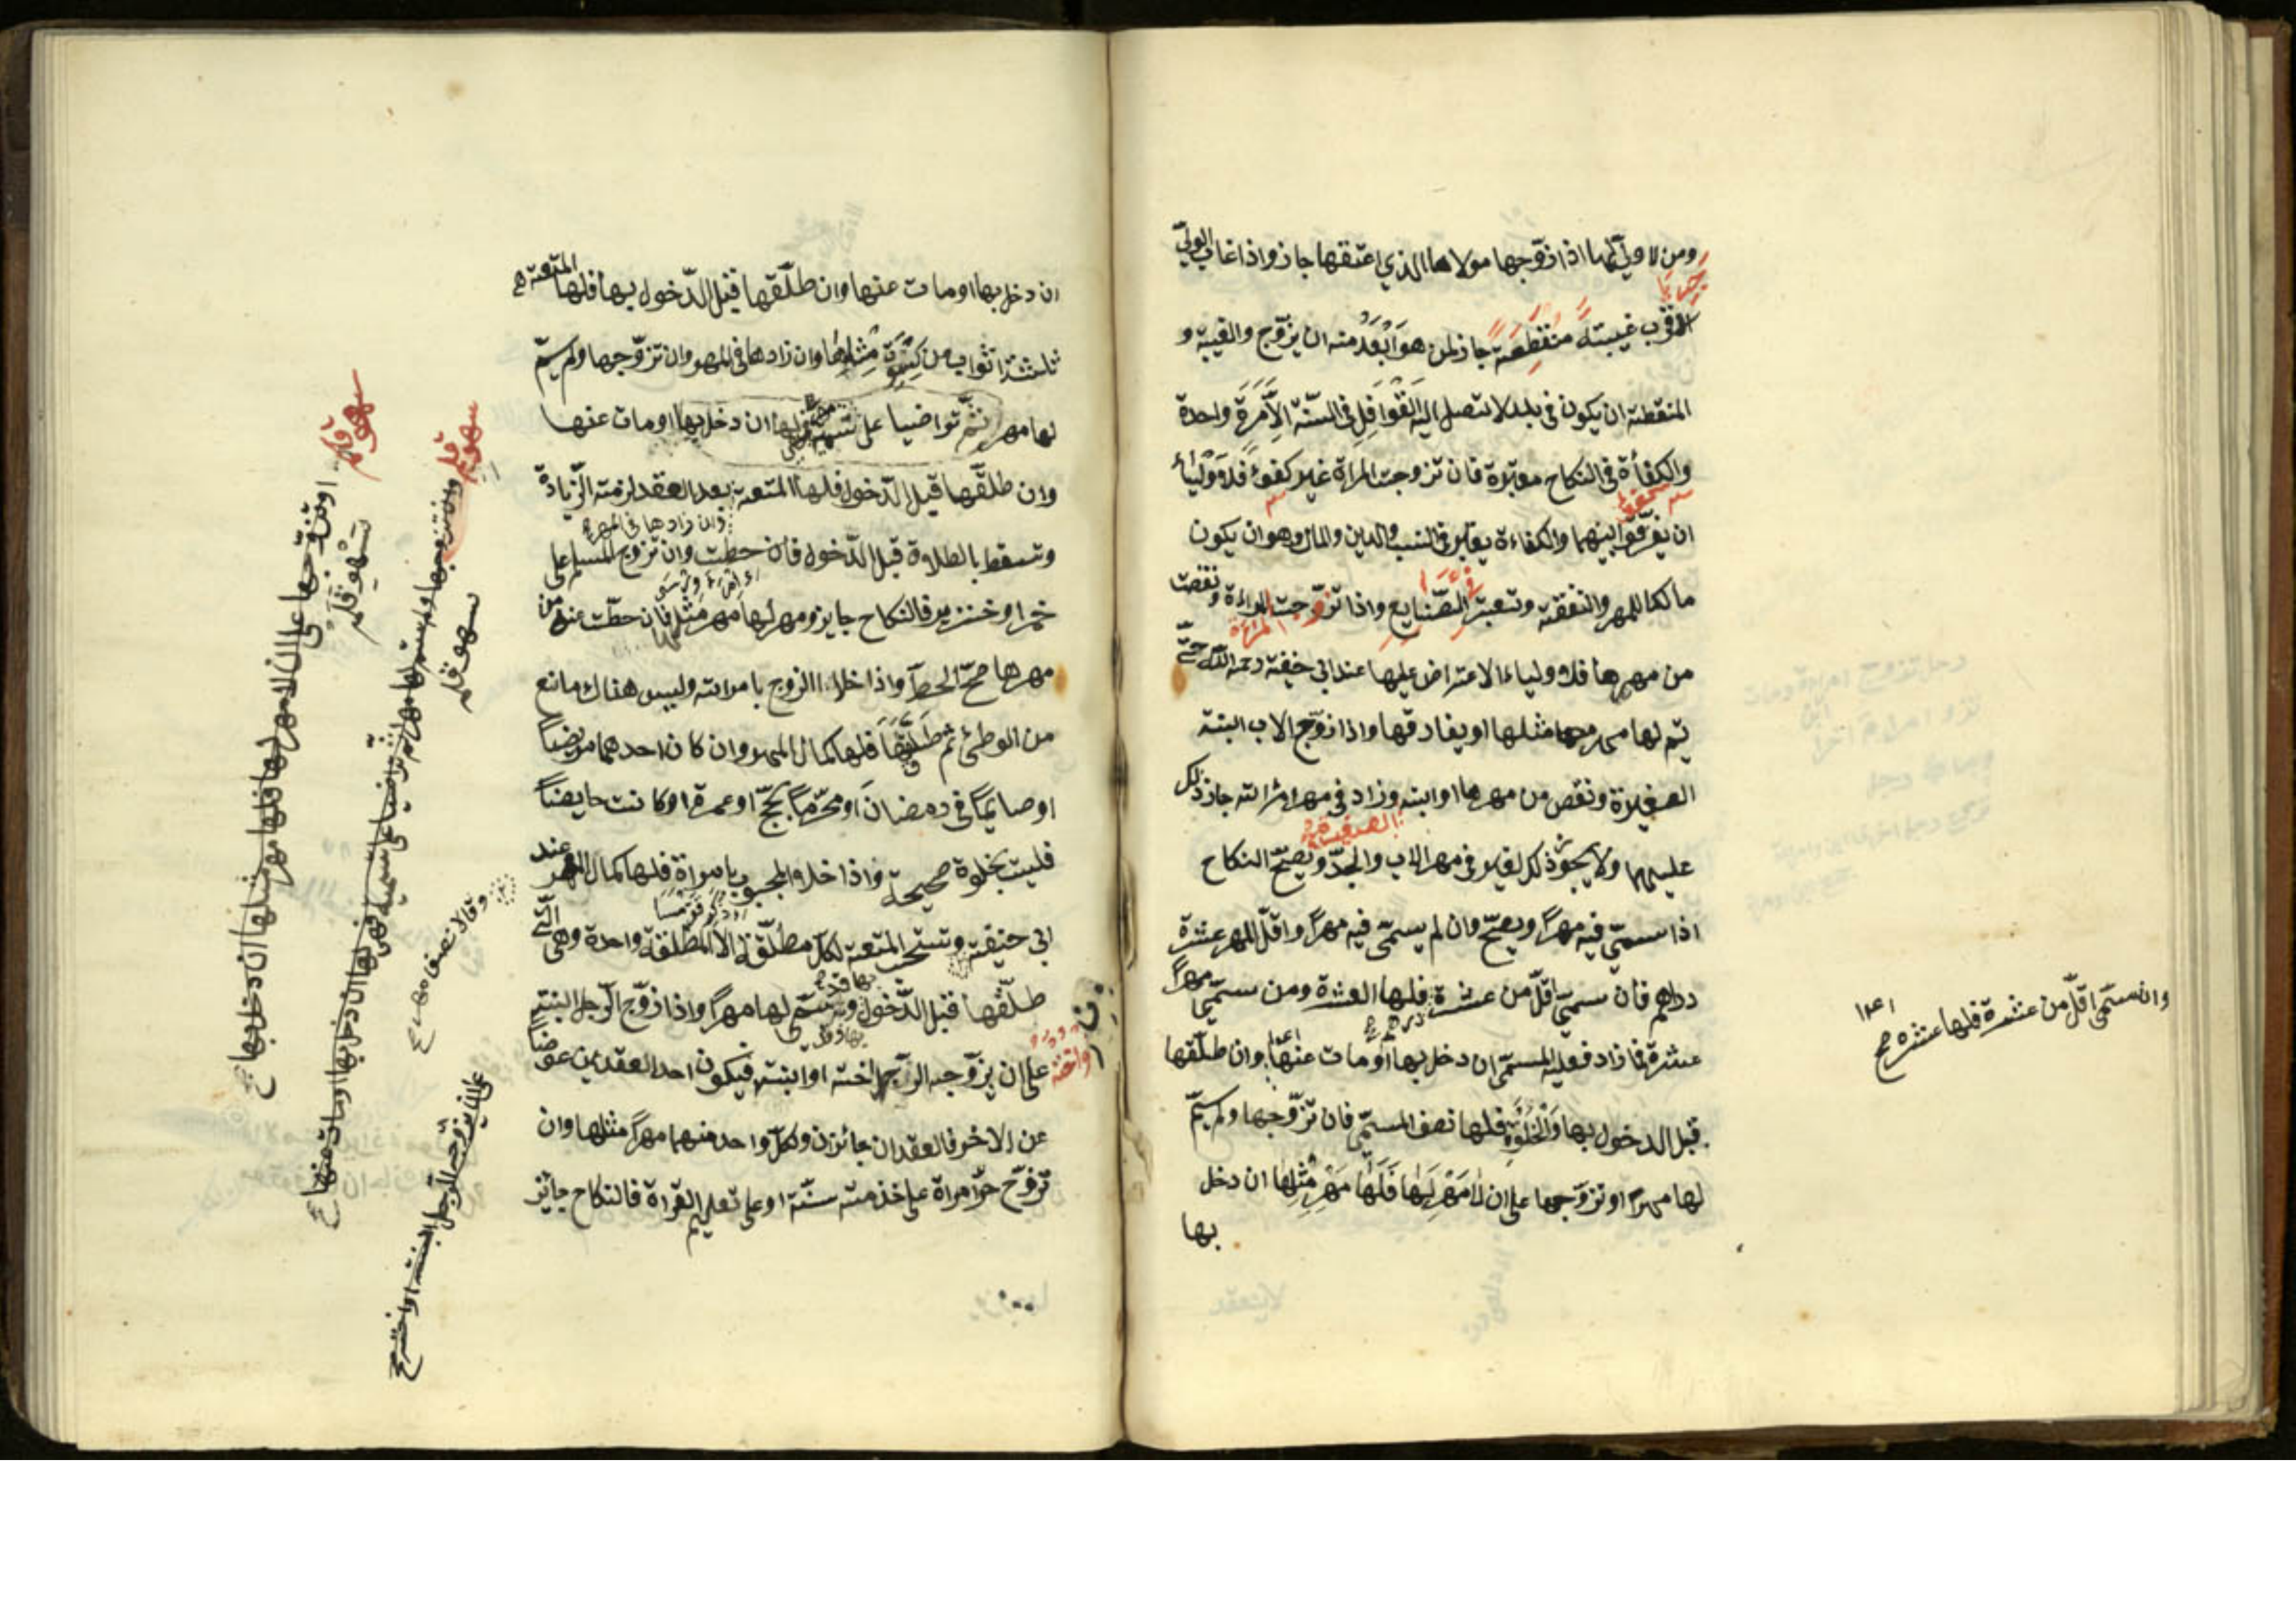 ومن لا ولي لها اذا زوّجها مولاها الذي اعتقها جاز واذا غاب الوليّ
الاقرب غيبتة منقطعة جاز لمن هو ابعد منه ان يزوّج والغيبة و
المنقطة ان يكون في بلد لا تصل اليه القوافل في السنّة الاّ مرة واحدة
والكفأة في النكاح معتبرة فان تزوجت المراة غير كفوء فلاولياء
ان يفرّقوا بينهما والكفاءة يعتبر في النسب والدين والمال وهو ان يكون
مالكا للمهر والنفقة وتعبتر الصّنايع واذا تزوّجت المراءة ونقصت
المراءة
من مهرها فلاولياء الاعتراض عليها عند ابي حنيفة رحمه اللّه حتّى
يتم لها مهر مثلها او يفارقها واذا زوّج الاب ابنتة
الصغيرة ونقص من مهرها او ابنه وزاد في مهر امراته جاز ذلك
الصغير
عليهما ولا يجوز ذلك لغير في مهر الاب والجدّ ويصحّ النكاح
اذا سمّي فيه مهراً ويصحّ وان لم يسمّى فيه مهراً واقلّ المهر عشرة
دراهم فان سمّي اقلّ من عشرة فلها العشرة ومن سمّي مهراً
عشرة فما زاد فعليه المسمّى ان دخل بها او مات عنها وان طلّقها
قبل الدخول بها والخلوة فلها نصف المسمّى فان تزوّجها ولم يسمّ
لها مهراً او تزوّجها على ان لا مهر لها فلها مهر مثلها ان دخل
بها
وان سمّى اقلّ من عشرة فلها عشره صح
ان دخل بها او مات عنها وان طلّقها قبل الدّخول بها فلها المتعة
ثلثة اثواب من كسوة مثلها وان زادها في المهر وان تزوّجها ولم يسمّ
لها مهر ثمّ تراضيا على تسمية فهي لها ان دخل بها او مات عنها
وان طلّقها قبل الدّخول فلها المتعة بعد العقد لزمته الزّيادة
وان زادها في المهر
وتسقط بالطلاق قبل الدّخول فان حطت وان تزوج المسلم على
خمر او خنزير فالنكاح جايز ومهر لها مهر مثلها فان حطّت عنه من
مهرها صحّ الحطّ واذا خلا الزوج بامراته وليس هناك مانع
من الوطئ ثم طلّقها فلها كمال المهر وان كان احدهما مريضاً
او صايماً في رمضان او محرّماً بحجّ او عمرة او كانت حايضاً
فليت بخلوة صحيحة واذا خلا المجبوب بامراة فلها كمال المهر عند
ابي حنيفة وتستحب المتعة لكلّ مطلّقة الا المطلقة واحدة وهي الّتي
طلّقها قبل الدّخول وسمّى لها مهراً واذا زوّج الرّجل ابنته
على ان يزوّجه الرّجل اخته او ابنته فيكون احد العقدين عوضاً
عن الاخر فالعقدان جائزن ولكلّ واحد منهما مهراً مثلها وان
تزوّج حرّ امراة على خذمته سنّة او على تعليم القراة فالنكاح جايز
سهو قلم
او تزوّجها على ان لا مهر لها فلها مهر مثلها ان دخل بها صح
سهو قلم
سهو قلم
وان تزوجها ولم يسمّ لها مهراً ثمّ تراضيا على تسمية فهي لها ان دخل بها او مات عنها صح
سهو قلم
وقالا نصف مهر صح
على ان يزوّجه الرّجل ابنته او اخته صح